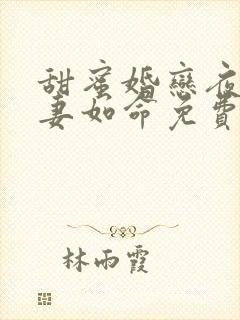 甜蜜婚戀夜
妻如命免費
林雨霞